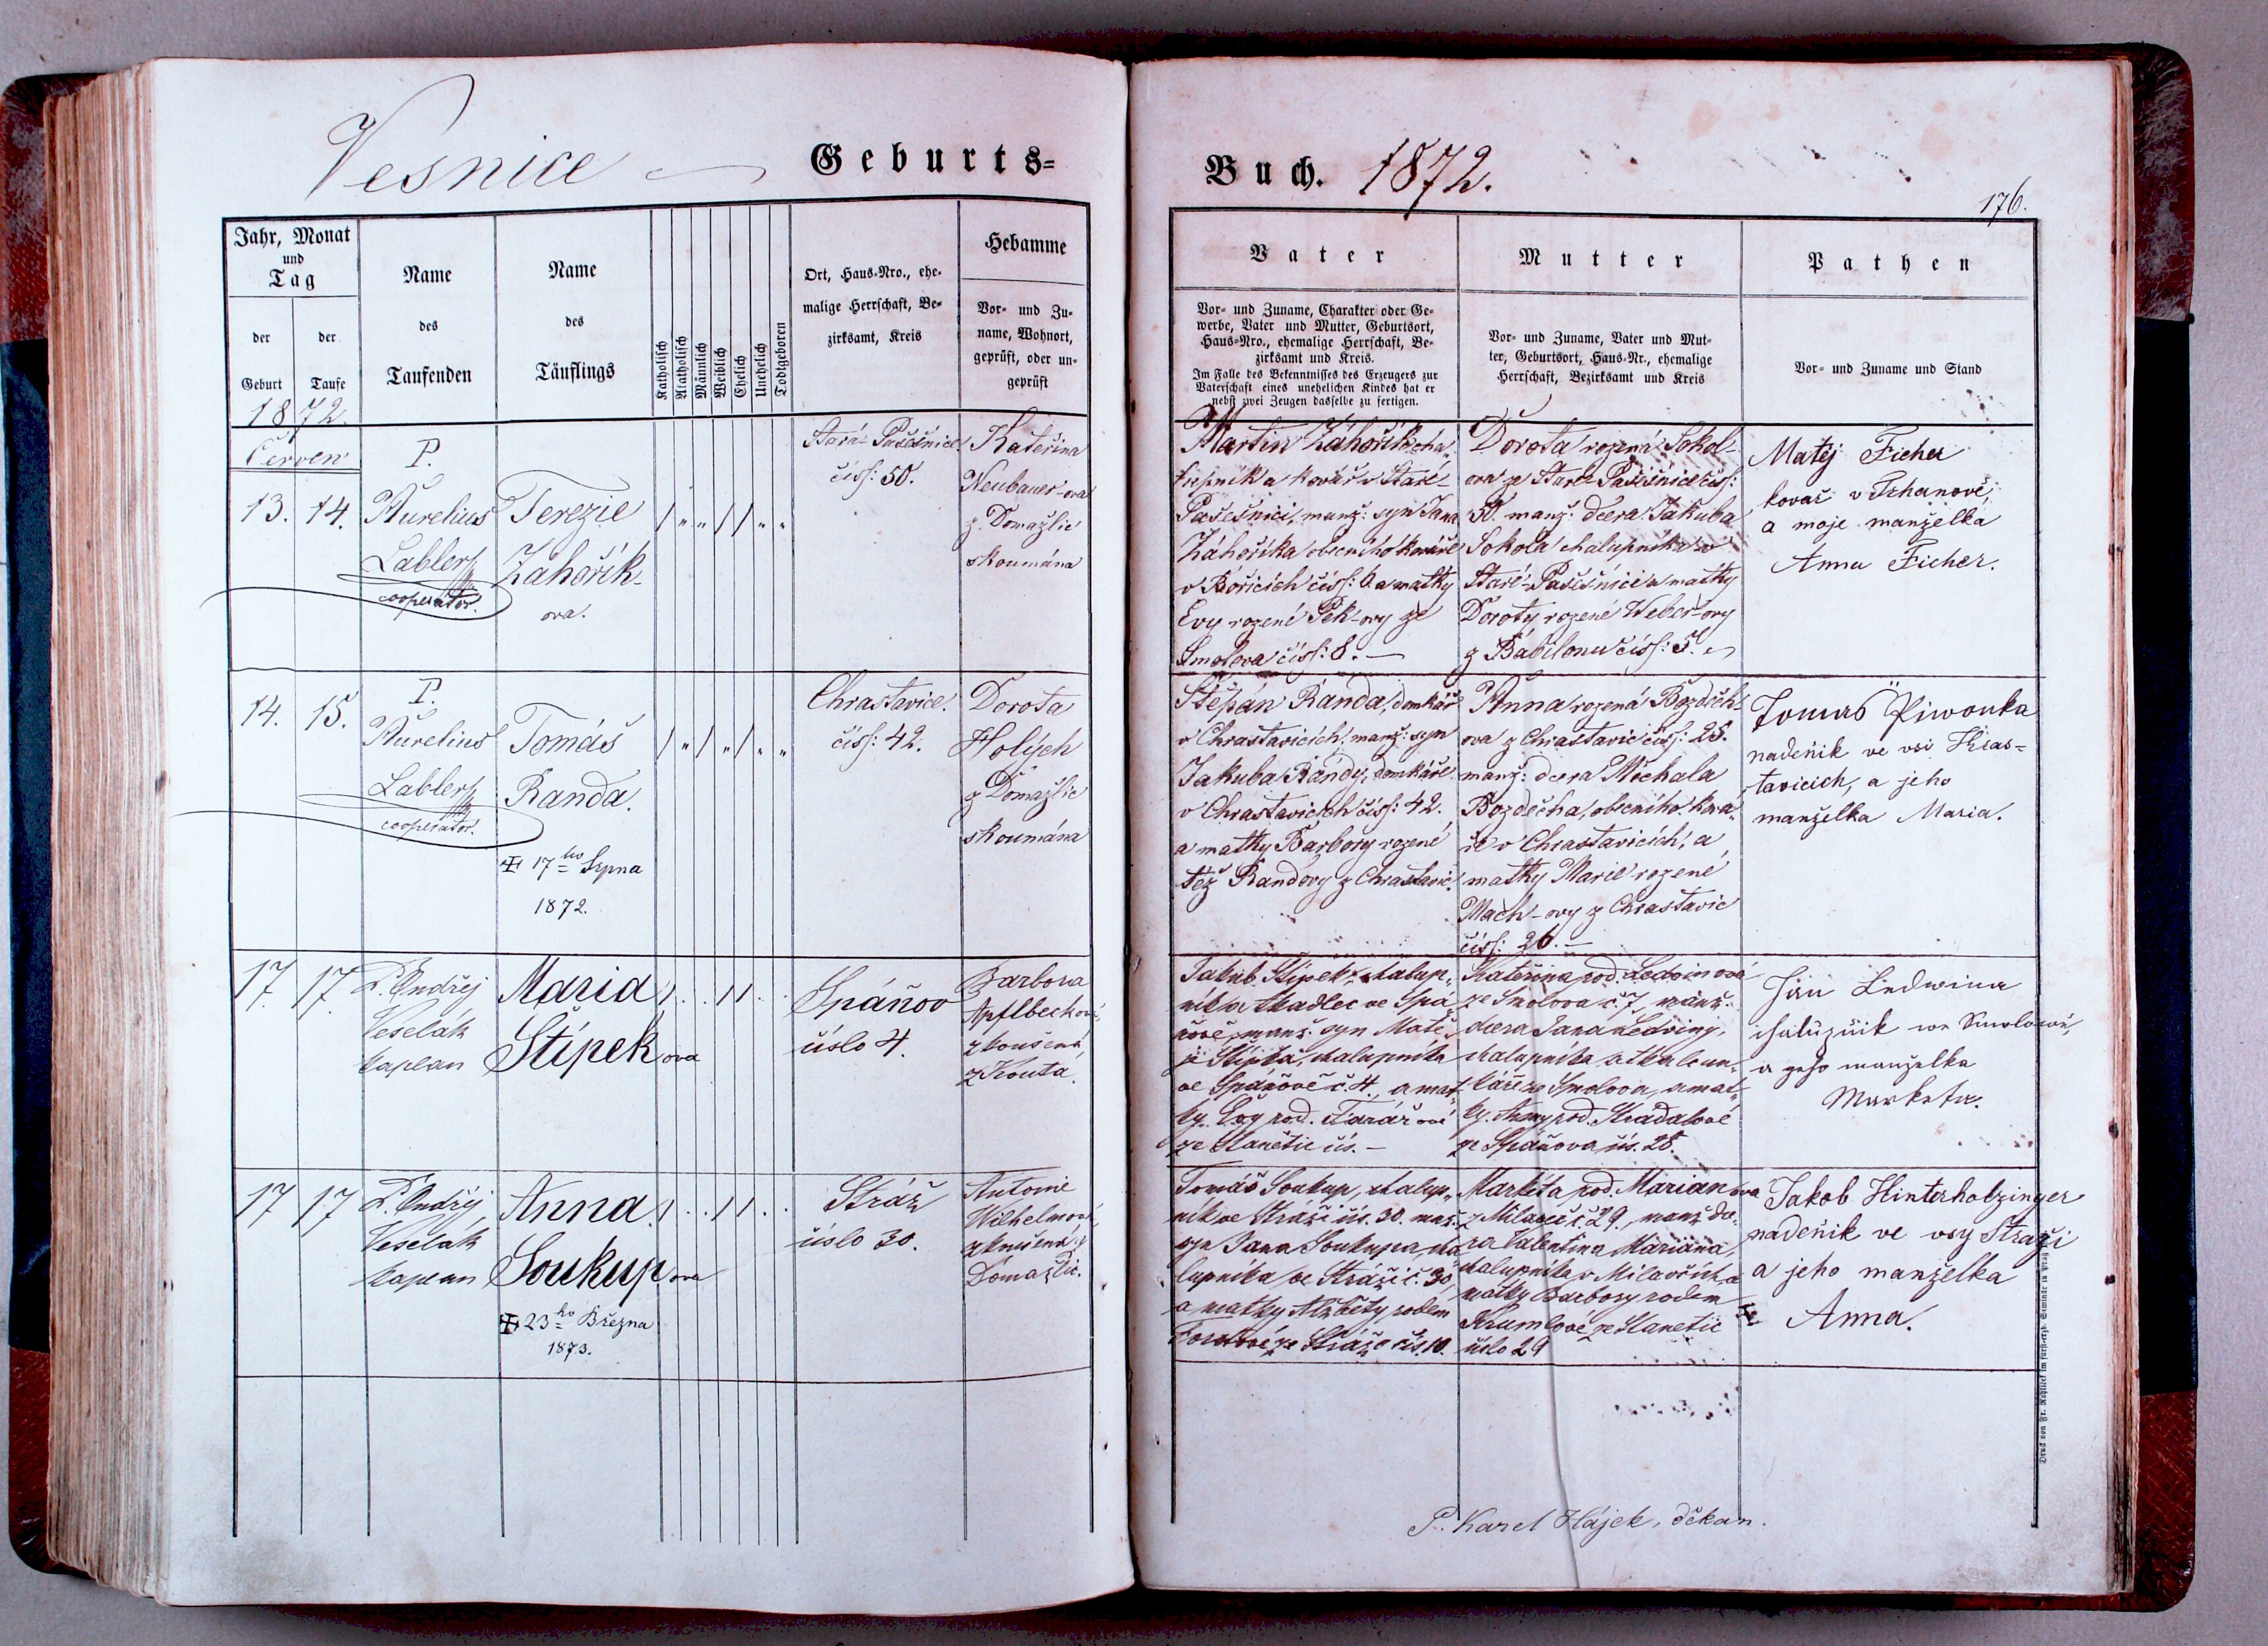 Vesnice
Geburts=
Buch. 1872.
176.
Jahr, Monat
und
Tag
der
Geburt
der
Taufe
Name
des
Taufenden
Name
des
Täuflings
Katholisch
Akatholisch
Männlich
Weiblich
Ehelich
Unehelich
Todtgeboren
Ort, Haus-Nro., ehe-
malige Herrschaft, Be-
zirksamt, Kreis
Hebamme
Vor- und Zu-
name, Wohnort,
geprüft, oder un-
geprüft
Vater
Vor- und Zuname, Charakter oder Ge-
werbe, Vater und Mutter, Geburtsort,
Haus-Nro., ehemalige Herrschaft, Be-
zirksamt und Kreis.
Im Falle des Bekenntnisses des Erzeugers zur
Vaterschaft eines unehelichen Kindes hat er
nebst zwei Zeugen dasselbe zu fertigen.
Mutter
Vor- und Zuname, Vater und Mut-
ter, Geburtsort, Haus-Nr., ehemalige
Herrschaft, Bezirksamt und Kreis
Pathen
Vor- und Zuname und Stand
1872.
Červen
13. 14.
P.
Aurelius
Labler
cooperátor.
Terezie
Záhořík-
ova.
Stará-Pasečnice
čísl: 50.
Kateřina
Neubauer-ova
z Domažlic
skoumána
Martin Záhořík, cha-
lupník a kovář v Staré-
Pasečnici, manž: syn Jana
Záhoříka obecního kováře
v Bořicích čísl: 6 a matky
Evy rozené Pek-ovy ze
Smolova čísl: 8. —
Dorota rozená Sokol-
ova ze Staré-Pasečnice čísl:
50. manž: dcera Jakuba
Sokola chalupníka v
Staré-Pasečnici a matky
Doroty rozené Weber-ovy
z Babilonu čísl: 5.
Matěj Ficher
kovař v Trhanově,
a moje manželka
Anna Ficher.
14. 15.
P.
Aurelius
Labler
cooperátor.
Tomáš
Randa.
17ho Srpna
1872.
Chrastavice.
čísl: 42.
Dorota
Holých
z Domažlic
skoumána
Štěpán Randa, domkář
v Chrastavicích, manž: syn
Jakuba Randy, domkáře
v Chrastavicích čísl: 42.
a matky Barbory rozené
též Randovy z Chrastavic.
Anna rozená Bozděch-
ova z Chrastavic čísl: 25.
manž: dcera Michala
Bozděcha, obecního ková-
ře v Chrastavicích, a
matky Marie rozené
Mach-ovy z Chrastavic
čísl: 26. —
Tomas Piwonka
nadeňik ve vsi Hras-
tavicich, a jeho
manželka Maria.
17. 17.
P. Ondřej
Veselák
kaplan
Maria
Štípek ova
Spáňov
číslo 4.
Barbora
Apflbeckova,
zkoušená
z Kouta.
Jakub Štípek, chalup-
ník a tkadlec ve Spá-
ňově, manž. syn Matě-
je Štípka, chalupníka
ve Spáňově č. 4. a mat-
ky Evy rod. Farářové
ze Stanětic čís. —
Kateřina rod. Ledvinová
ze Smolova č. 7, manž.
dcera Jana Ledviny,
chalupníka
ze Smolova, a mat-
ky Anny rod.
ze Spáňova čís. 28.
Jan Ledwina
we Smolowě,
a geho manželka
Marketa.
17 17
P. Ondřej
Veselák
kaplan
Anna
Soukup ova
23ho Března
1873.
Stráž
číslo 30.
Antonie
Wilhelmová,
zkoušená z
Domažlic.
Tomáš Soukup, chalup-
ník ve Stráži čís. 30. manž.
syn Jana Soukupa, cha-
lupníka ve Stráži č. 30,
a matky Alžběty rodem
ze Stráže čís. 10.
Marketa rod. Marian ova
z Milaveč č. 29, manž. dce-
ra Valentina Mariana,
chalupníka v Milavčích a
matky Barbory rodem
Krumlové ze Stanětic
číslo 29
Jakob Hinterholzinger
nadeňik ve vsy Straži
a jeho manželka
Anna.
P. Karel Hájek, děkan.